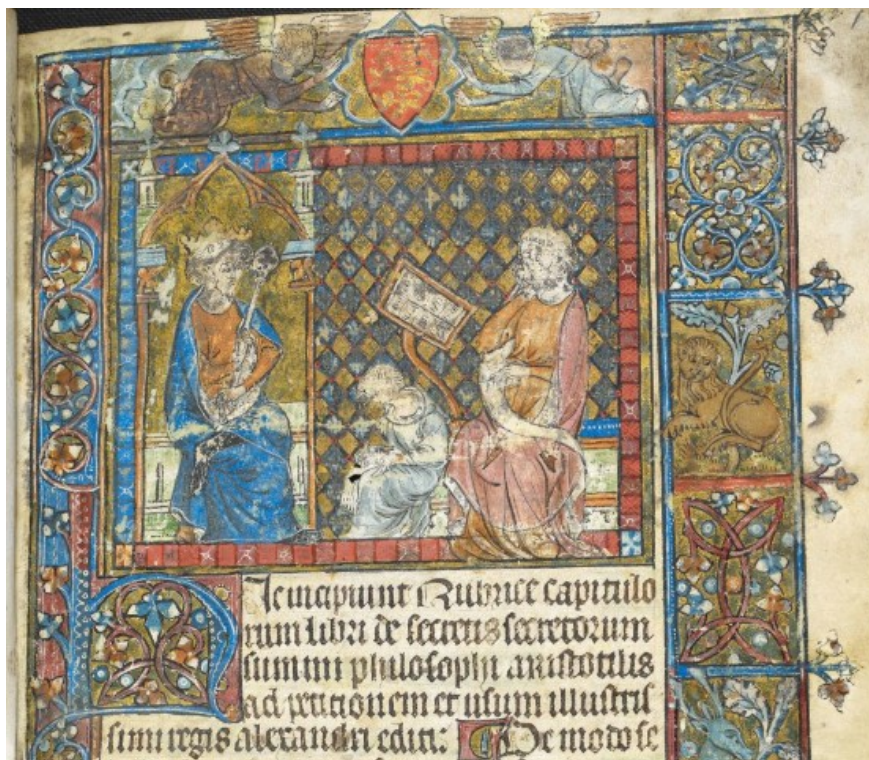 Hic incipiunt Rubrice capitulo
rum libri de secretis secretorum
summi philosophi aristotilis
ad peticionem et usum illustris
simi regis alexandri editi: De modo se